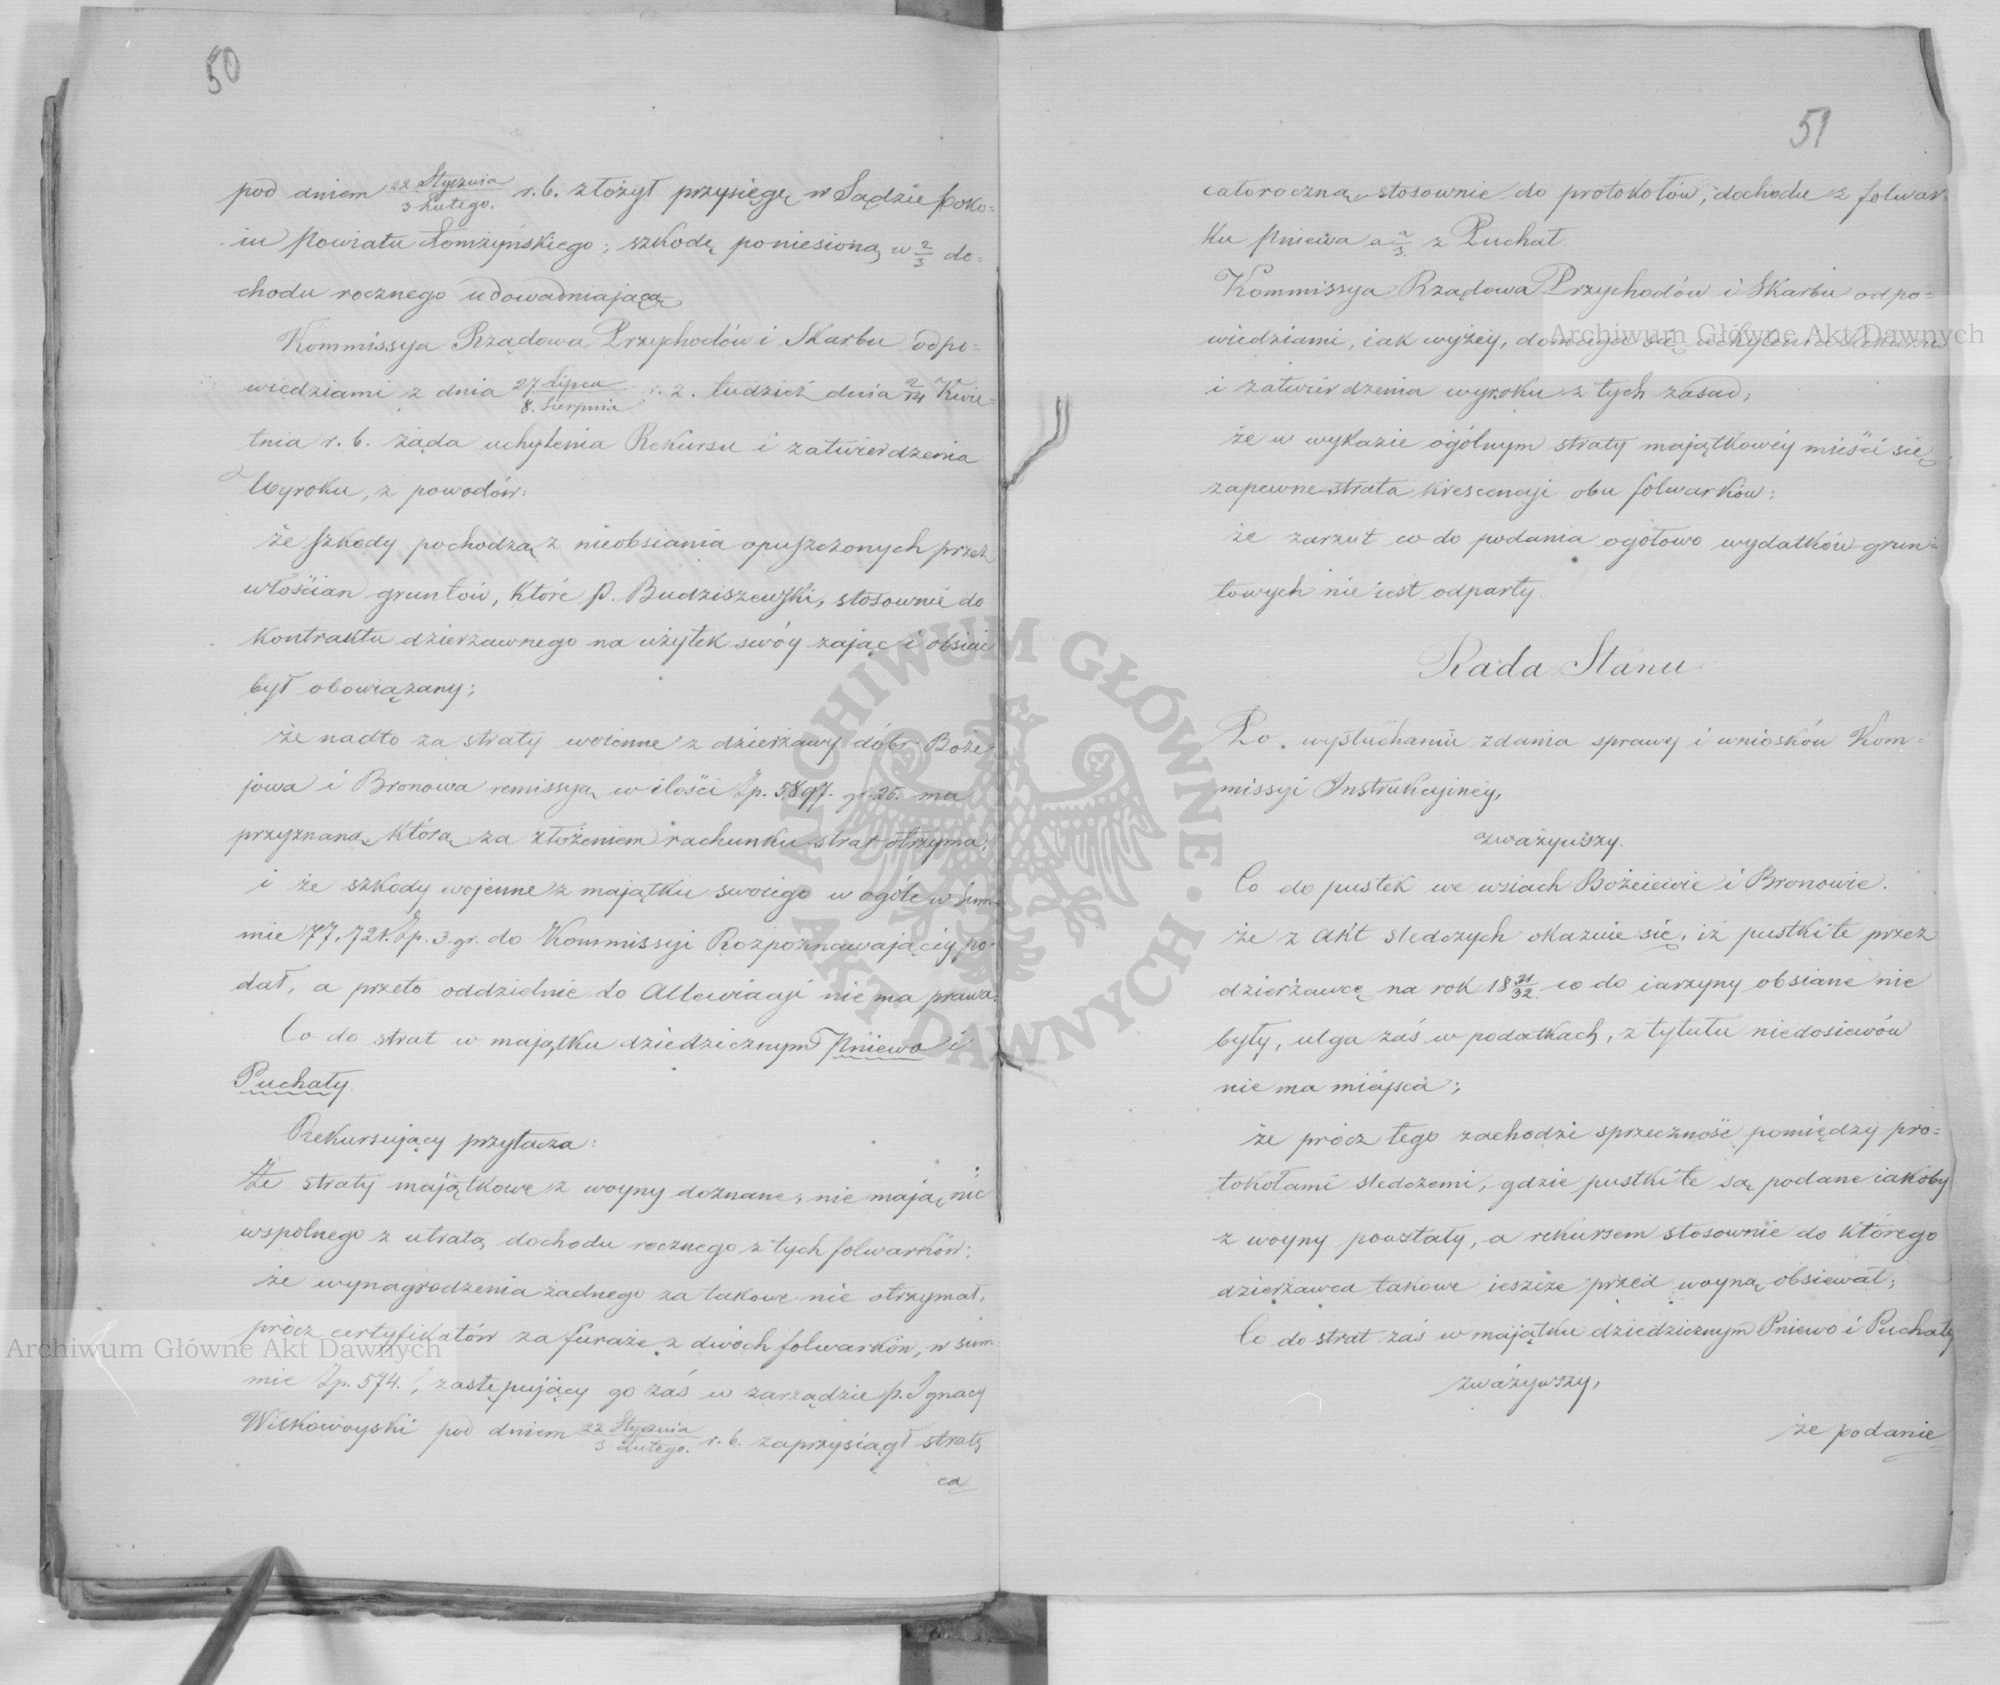 50
pod dniem 22 Stycznia / 3 Lutego. r. b. złożył przysięgę w Sądzie poko=
iu Powiatu Łomżyńskiego; szkodę poniesioną w 2/3 do=
chodu rocznego udowadniającą
Kommissya Rządowa Przychodów i Skarbu odpo=
wiedziami z dnia 27 Lipca / 8. Sierpnia r. z. tudzież dnia 2/14 Kwie=
tnia r. b. żąda uchylenia Rekursu i zatwierdzenia
Wyroku, z powodów:
że szkody pochodzą z nieobsiania opuszczonych przez
włościan gruntów, które P. Budziszewski, stosownie do
kontraktu dzierżawnego na użytek swóy zająć i obsiać
był obowiązany;
że nadto za straty woienne z dzierżawy dóbr Boże=
jowa i Bronowa remissyą w ilości Zp. 5,897. gr. 25. ma
przyznaną, którą za złożeniem rachunku strat otrzyma;
i że szkody wojenne z majątku swoiego w ogóle w Sum=
mie 77,721. Zp. 3. gr. do Kommissyi Rozpoznawającéy po=
dał, a przeto oddzielnie do Allewiacyi nie ma prawa.
Co do strat w majątku dziedzicznym Pniewo i
Puchały.
Rekursujący przytacza:
Że straty majątkowe z woyny doznane, nie mają nic
wspólnego z utratą dochodu rocznego z tych folwarków;
że wynagrodzenia żadnego za takowe nie otrzymał,
prócz certyfikatów za furaże z dwóch folwarków, w sum=
mie Zp. 574., zastępujący go zaś w zarządzie P. Ignacy
Wilkowoyski pod dniem 22 Stycznia / 3 Lutego. r. b. zaprzysiągł stratę
ca
51
całoroczną, stosownie do protokołów, dochodu z folwar=
ku Pniewa a 2/3. z Puchał.
Kommissya Rządowa Przychodów i Skarbu odpo=
wiedziami, iak wyżéy, domaga się uchylenia Rekursu
i zatwierdzenia wyroku z tych zasad;
że w wykazie ogólnym straty majątkowéy mieści się
zapewne strata krescencyi obu folwarków;
że zarzut co do podania ogółowo wydatków grun=
towych nie iest odparty.
Rada Stanu
Po wysłuchaniu zdania sprawy i wniosków Kom=
missyi Instrukcyinéy,
zważywszy.
Co do pustek we wsiach Bożeiewie i Bronowie.
że z akt śledczych okazuie się, iż pustki te przez
dzierżawcę na rok 18 31/32. co do iarzyny obsiane nie
były, ulga zaś w podatkach, z tytułu niedosiewów
nie ma miéjsca;
że prócz tego zachodzi sprzeczność pomiędzy pro=
tokołami śledczemi, gdzie pustki te są podane iakoby
z woyny powstały, a rekursem stosownie do którego
dzierżawca takowe ieszcze przed woyną obsiewał;
Co do strat zaś w maiątku dziedzicznym Pniewo i Puchały
zważywszy,
że podanie
Archiwum Główne Akt Dawnych
Archiwum Główne Akt Dawnych
ARCHIWUM GŁÓWNE AKT DAWNYCH